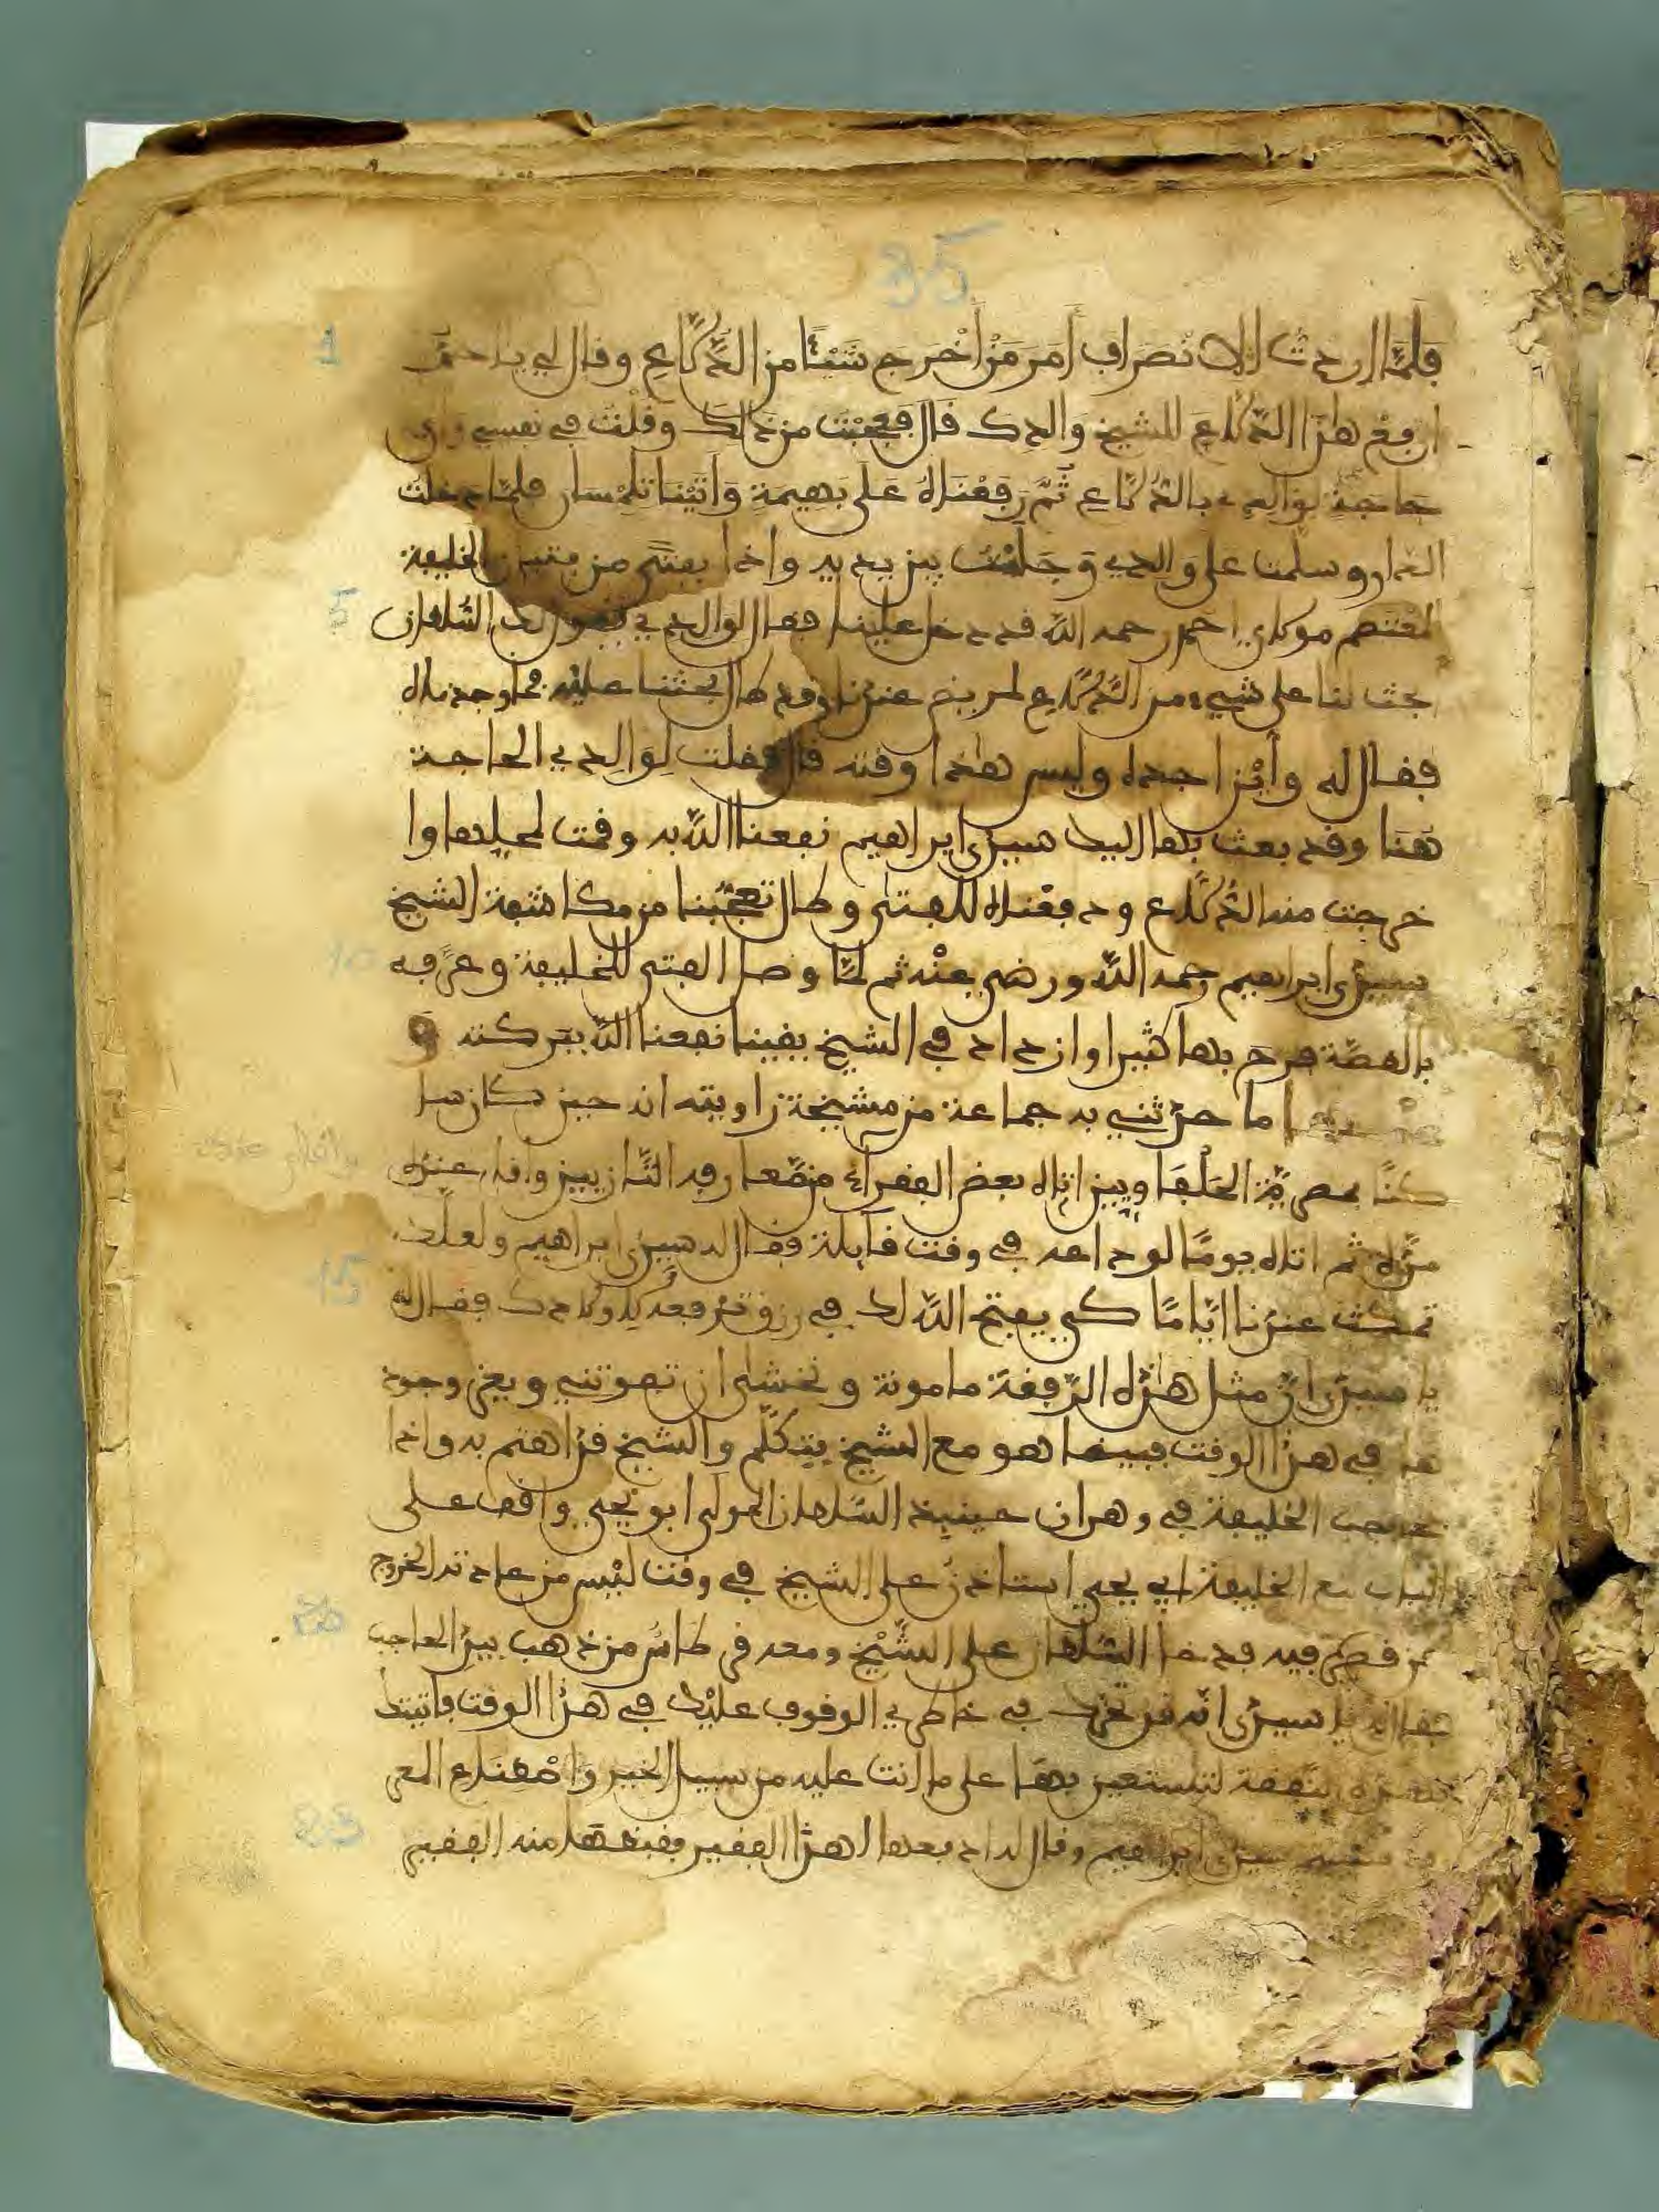 35
1
فلما اردت الانصراف أمر من أخرج شيئا من الدُّلاع وقال لي يا احمد
ارفع هذا الدلاع للشيخ والدك قال فعجبت من ذلك وقلت في نفسي وأي
حاجة لوالدي بالدلاع ثم رفعناه على بهيمة وأتينا تلمسان فلما دخلت
الدار وسلمت على والدي وجلست بين يديه واذا بفتى من فتيان الخليفة
5
المعتصم مولاي احمد رحمه الله قد دخل علينا فقال لوالدي يقول لك السلطان
ابحث لنا على شيء من الدلاع لمريض عندنا وقد طال بحثنا عليه فما وجدناه
فقال له وأين اجده وليس هذا وقته قال فقلت لوالدي الحاجة
هنا وقد بعث بها اليك سيدي ابراهيم نفعنا الله به وقمت لمحلها وا
خرجت منه الدلاع ودفعناه للفتى وطال تعجبنا من مكاشفة الشيخ
10
سيدي ابراهيم رحمه الله ورضي عنه ثم لما وصل الفتى للخليفة وعرفه
بالقصة فرح بها كثيرا وازداد في الشيخ يقينا نفعنا الله ببركته
ما حدثني به جماعة من مشيخة زاويته انه حين كان سا
كنا بمصرية الحلفاويين اتاه بعض الفقراء من صعار قد التازيين واقام عنده
مدة ثم اتاه يوما لوداعه في وقت قايلة فقال له سيدي ابراهيم ولعلك
15
تمكث عندنا اياما كي يفتح الله لك في رزق ترفعه لاولادك فقال له
يا سيدي ان مثل هذه الرفقة مامونة ونخشى ان تفوتني ويعز وجود
ها في هذا الوقت فبينما هو مع الشيخ يتكلم والشيخ قد اهتم به واذا
بحاجب الخليفة في وهران حينئذ السلطان المولى ابو يحيى واقف على
الباب مع الخليفة ابي يحيى استاذن على الشيخ في وقت ليس من عادته الخروج
20
من قصره فيه فدخل السلطان على الشيخ ومعه في طاس من ذهب بيد الحاجب
فقال له يا سيدي انه قد تحرك في خاطري الوقوف عليك في هذا الوقت فاتيتك
بهذه النفقة لتستعين بها على ما انت عليه من سبيل الخير واصطناع المعر
سيدي ابراهيم وقال له ادفعها لهذا الفقير فقبضها منه الفقير
23